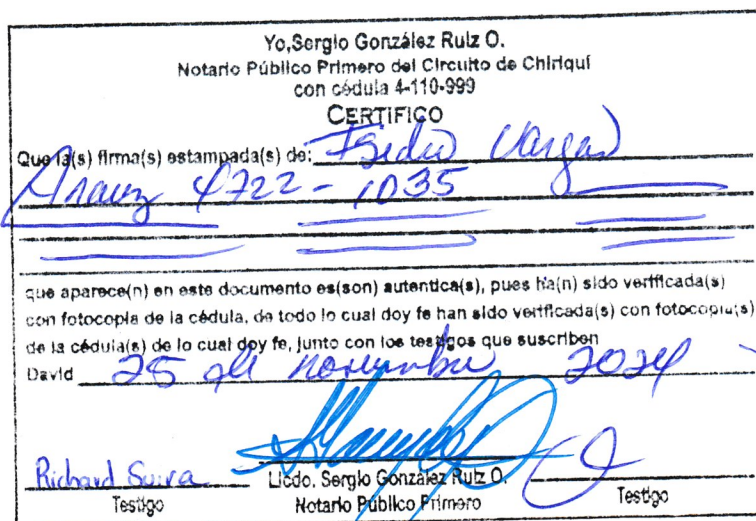 Yo,Sergio González Ruíz O.
Notario Público Primero del Circuito de Chiriquí
con cédula 4-110-999
CERTIFICO
Que la(s) firma(s) estampada(s) de: Isidro Vargas
Arauz 4722-1035
que aparece(n) en este documento es(son) autentica(s), pues ha(n) sido verificada(s)
con fotocopia de la cédula, de todo lo cual doy fe han sido verificada(s) con fotocopia(s)
de la cédula(s) de lo cual doy fe, junto con los testigos que suscriben
David 25 de noviembre 2024
Richard Suira
Testigo
Licdo. Sergio González Ruíz O.
Notario Público Primero
Testigo